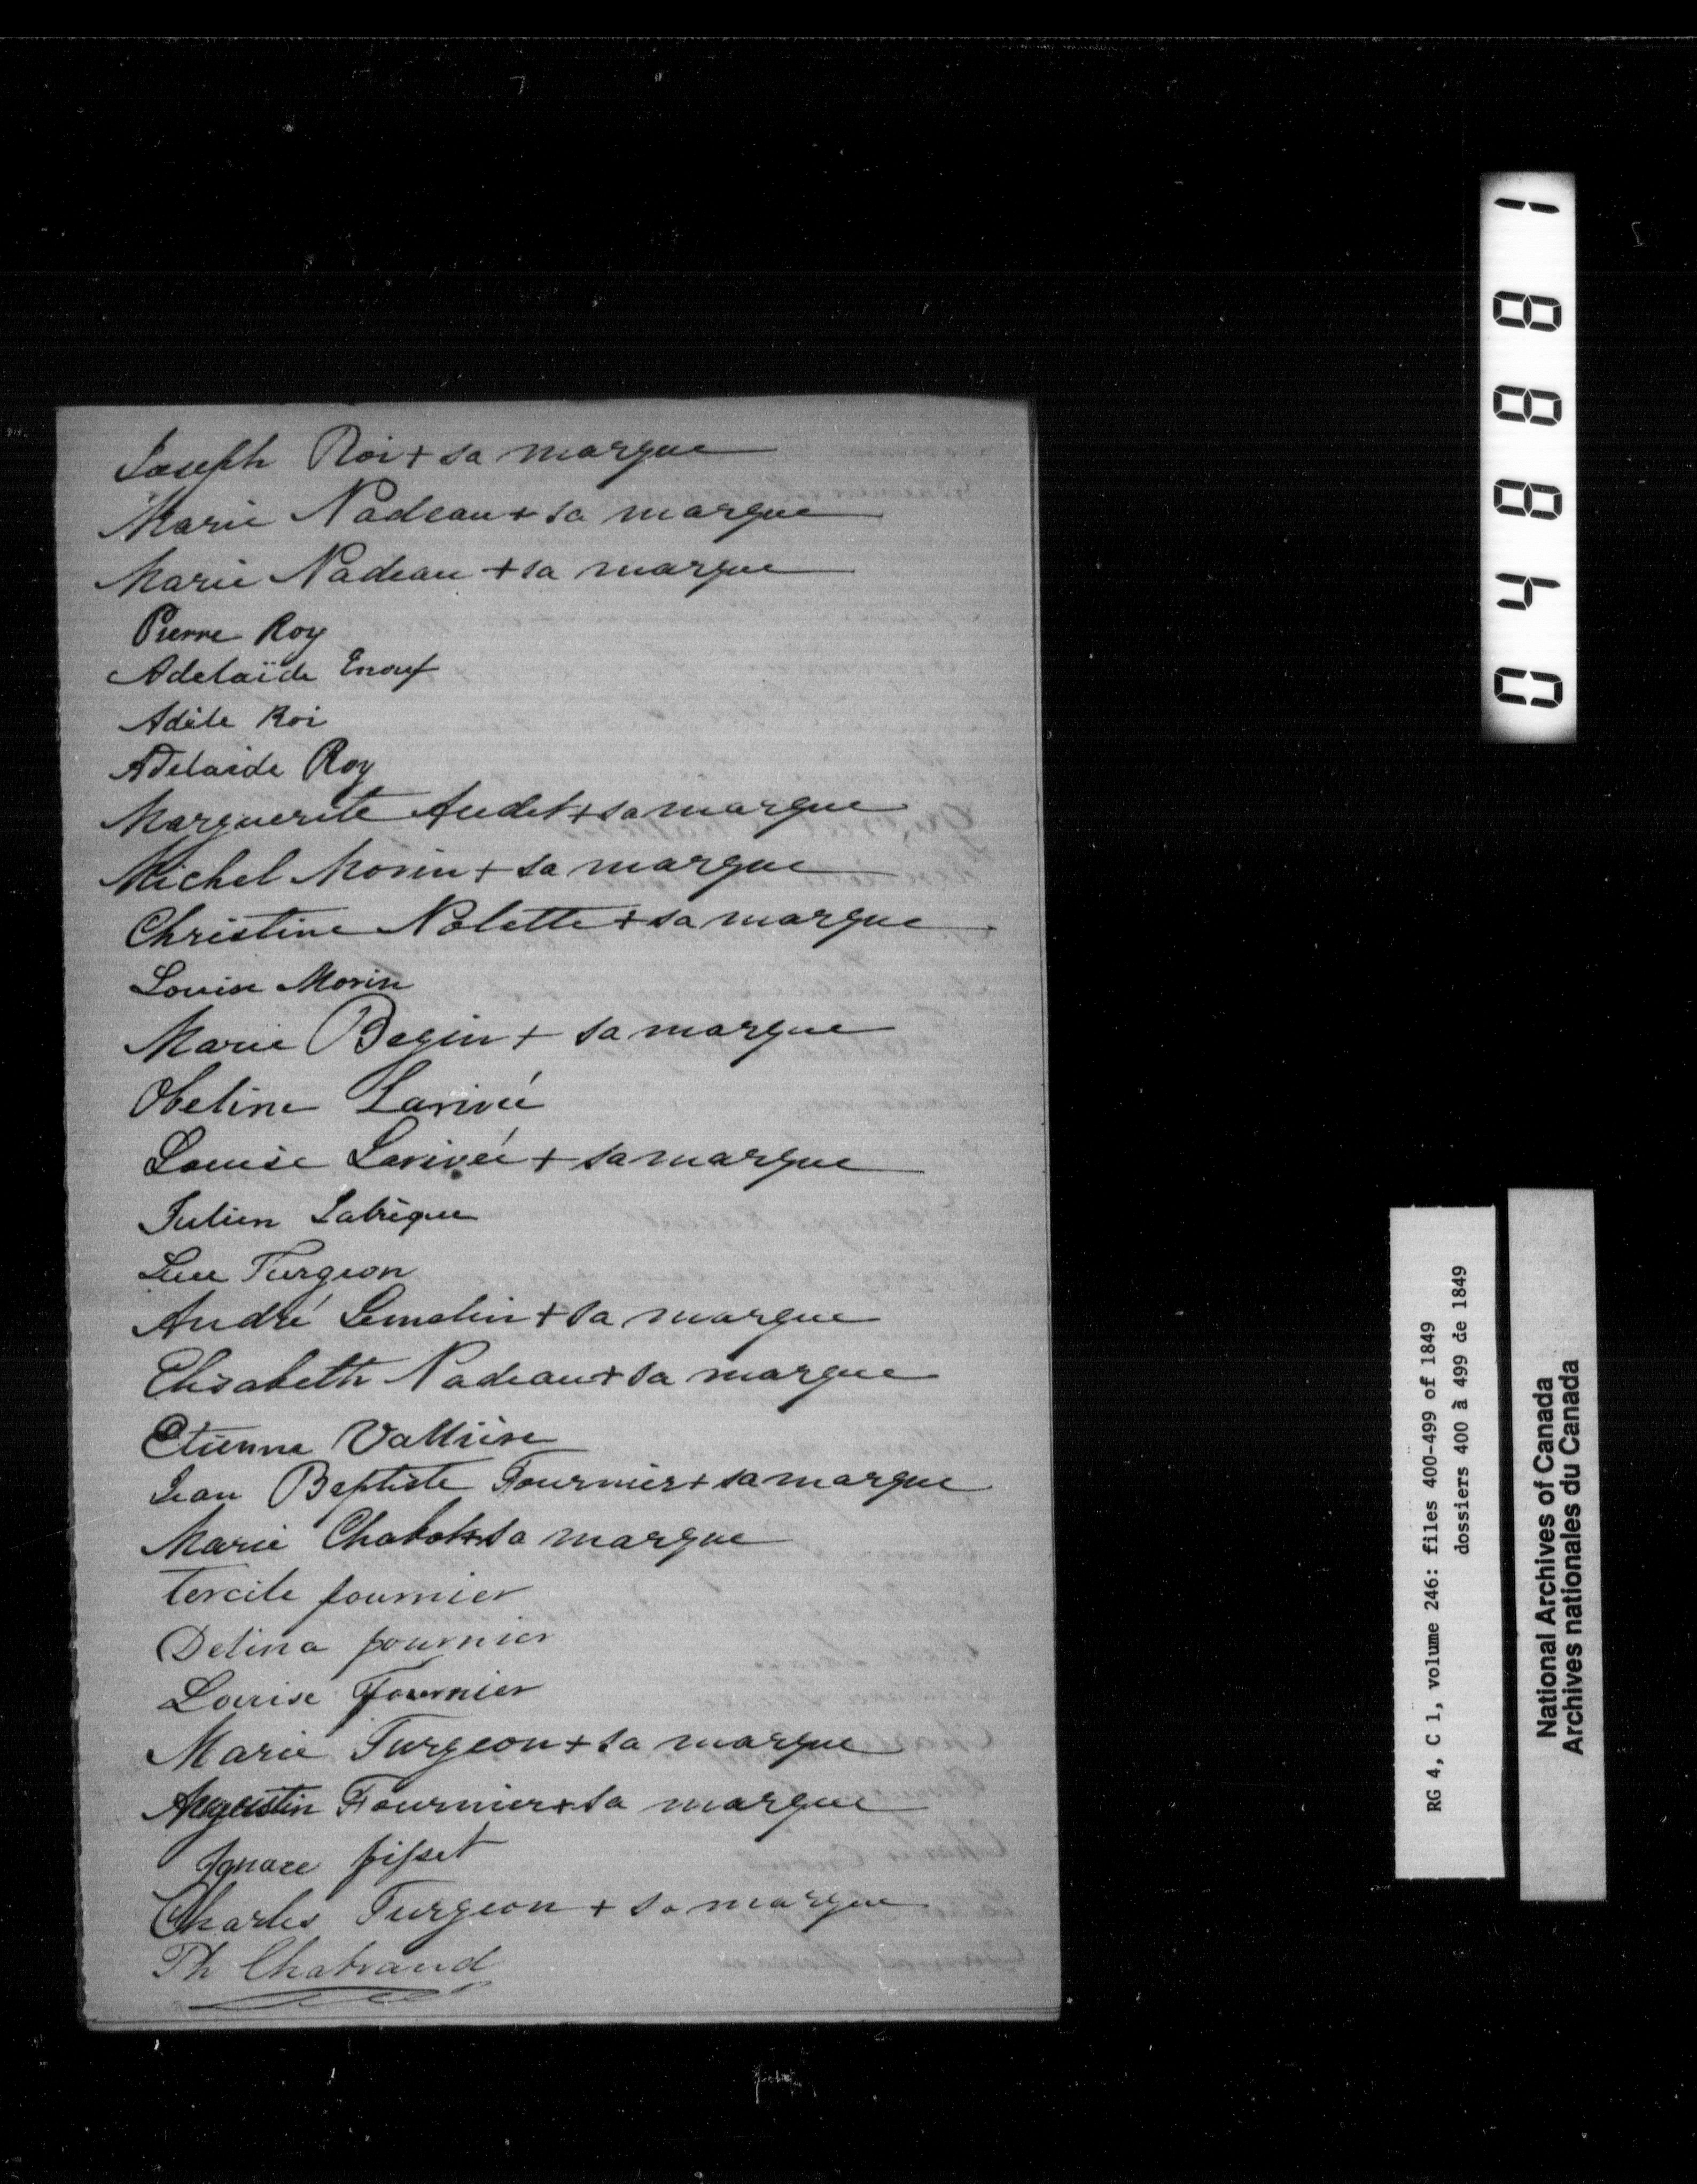 Joseph Roi + sa marque
Marie Nadeau + sa marque
Marie Nadeau + sa marque
Pierre Roy
Adelaïde Enouf
Adèle Roi
Adelaide Roy
Marguerite Audet + sa marque
Michel Morin + sa marque
Christine Nolette + sa marque
Louise Morin
Marie Begin + sa marque
Obeline Larivé
Louise Larivée + sa marque
Julien Labrèque
Luce Turgeon
André Lemelin + sa marque
Elisabeth Nadeau + sa marque
Etienne Vallière
Jean Baptiste Fournier + sa marque
Marie Chabot + sa marque
Tercile fournier
Delina fournier
Louise Fournier
Marie Turgeon + sa marque
Augustin Fournier + sa marque
Ignace fisset
Charles Turgeon + sa marque
Ph Chatrand
048881
RG 4, C 1, volume 246: files 400-499 of 1849
dossiers 400 à 499 de 1849
National Archives of Canada
Archives nationales du Canada